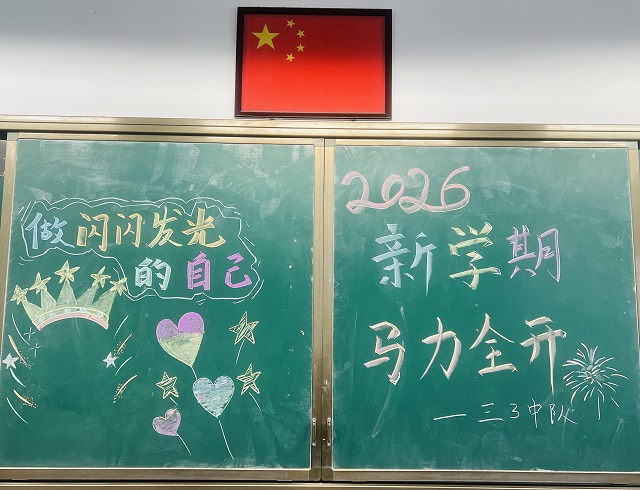 做闪闪发光
的自己
2026
新学期
马力全开
—三3中队